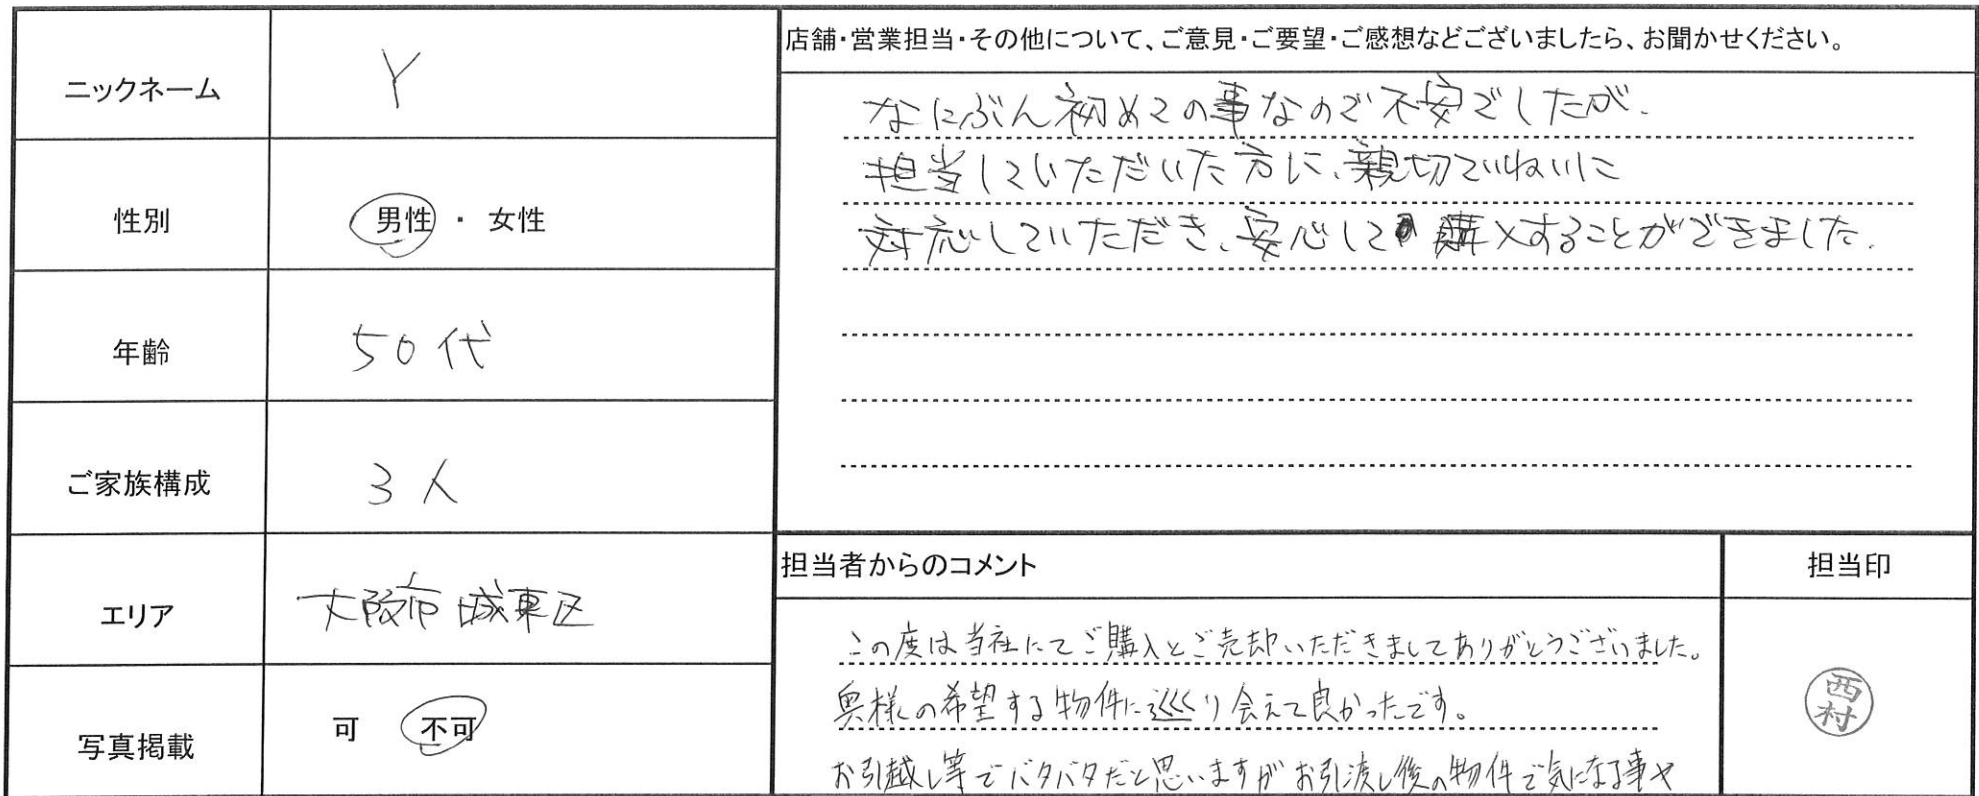 ニックネーム Y
性別 男性 ・ 女性
年齢 50代
ご家族構成 3人
エリア 大阪市城東区
写真掲載 可 不可
店舗・営業担当・その他について、ご意見・ご要望・ご感想などございましたら、お聞かせください。
なにぶん初めての事なので不安でしたが、
担当していただいた方に、親切ていねいに
対応していただき、安心して購入することができました。
担当者からのコメント
この度は当社にてご購入とご売却いただきましてありがとうございました。
奥様の希望する物件に巡り会えて良かったです。
お引越し等でバタバタだと思いますがお引渡し後の物件で気になる事や
担当印
西村